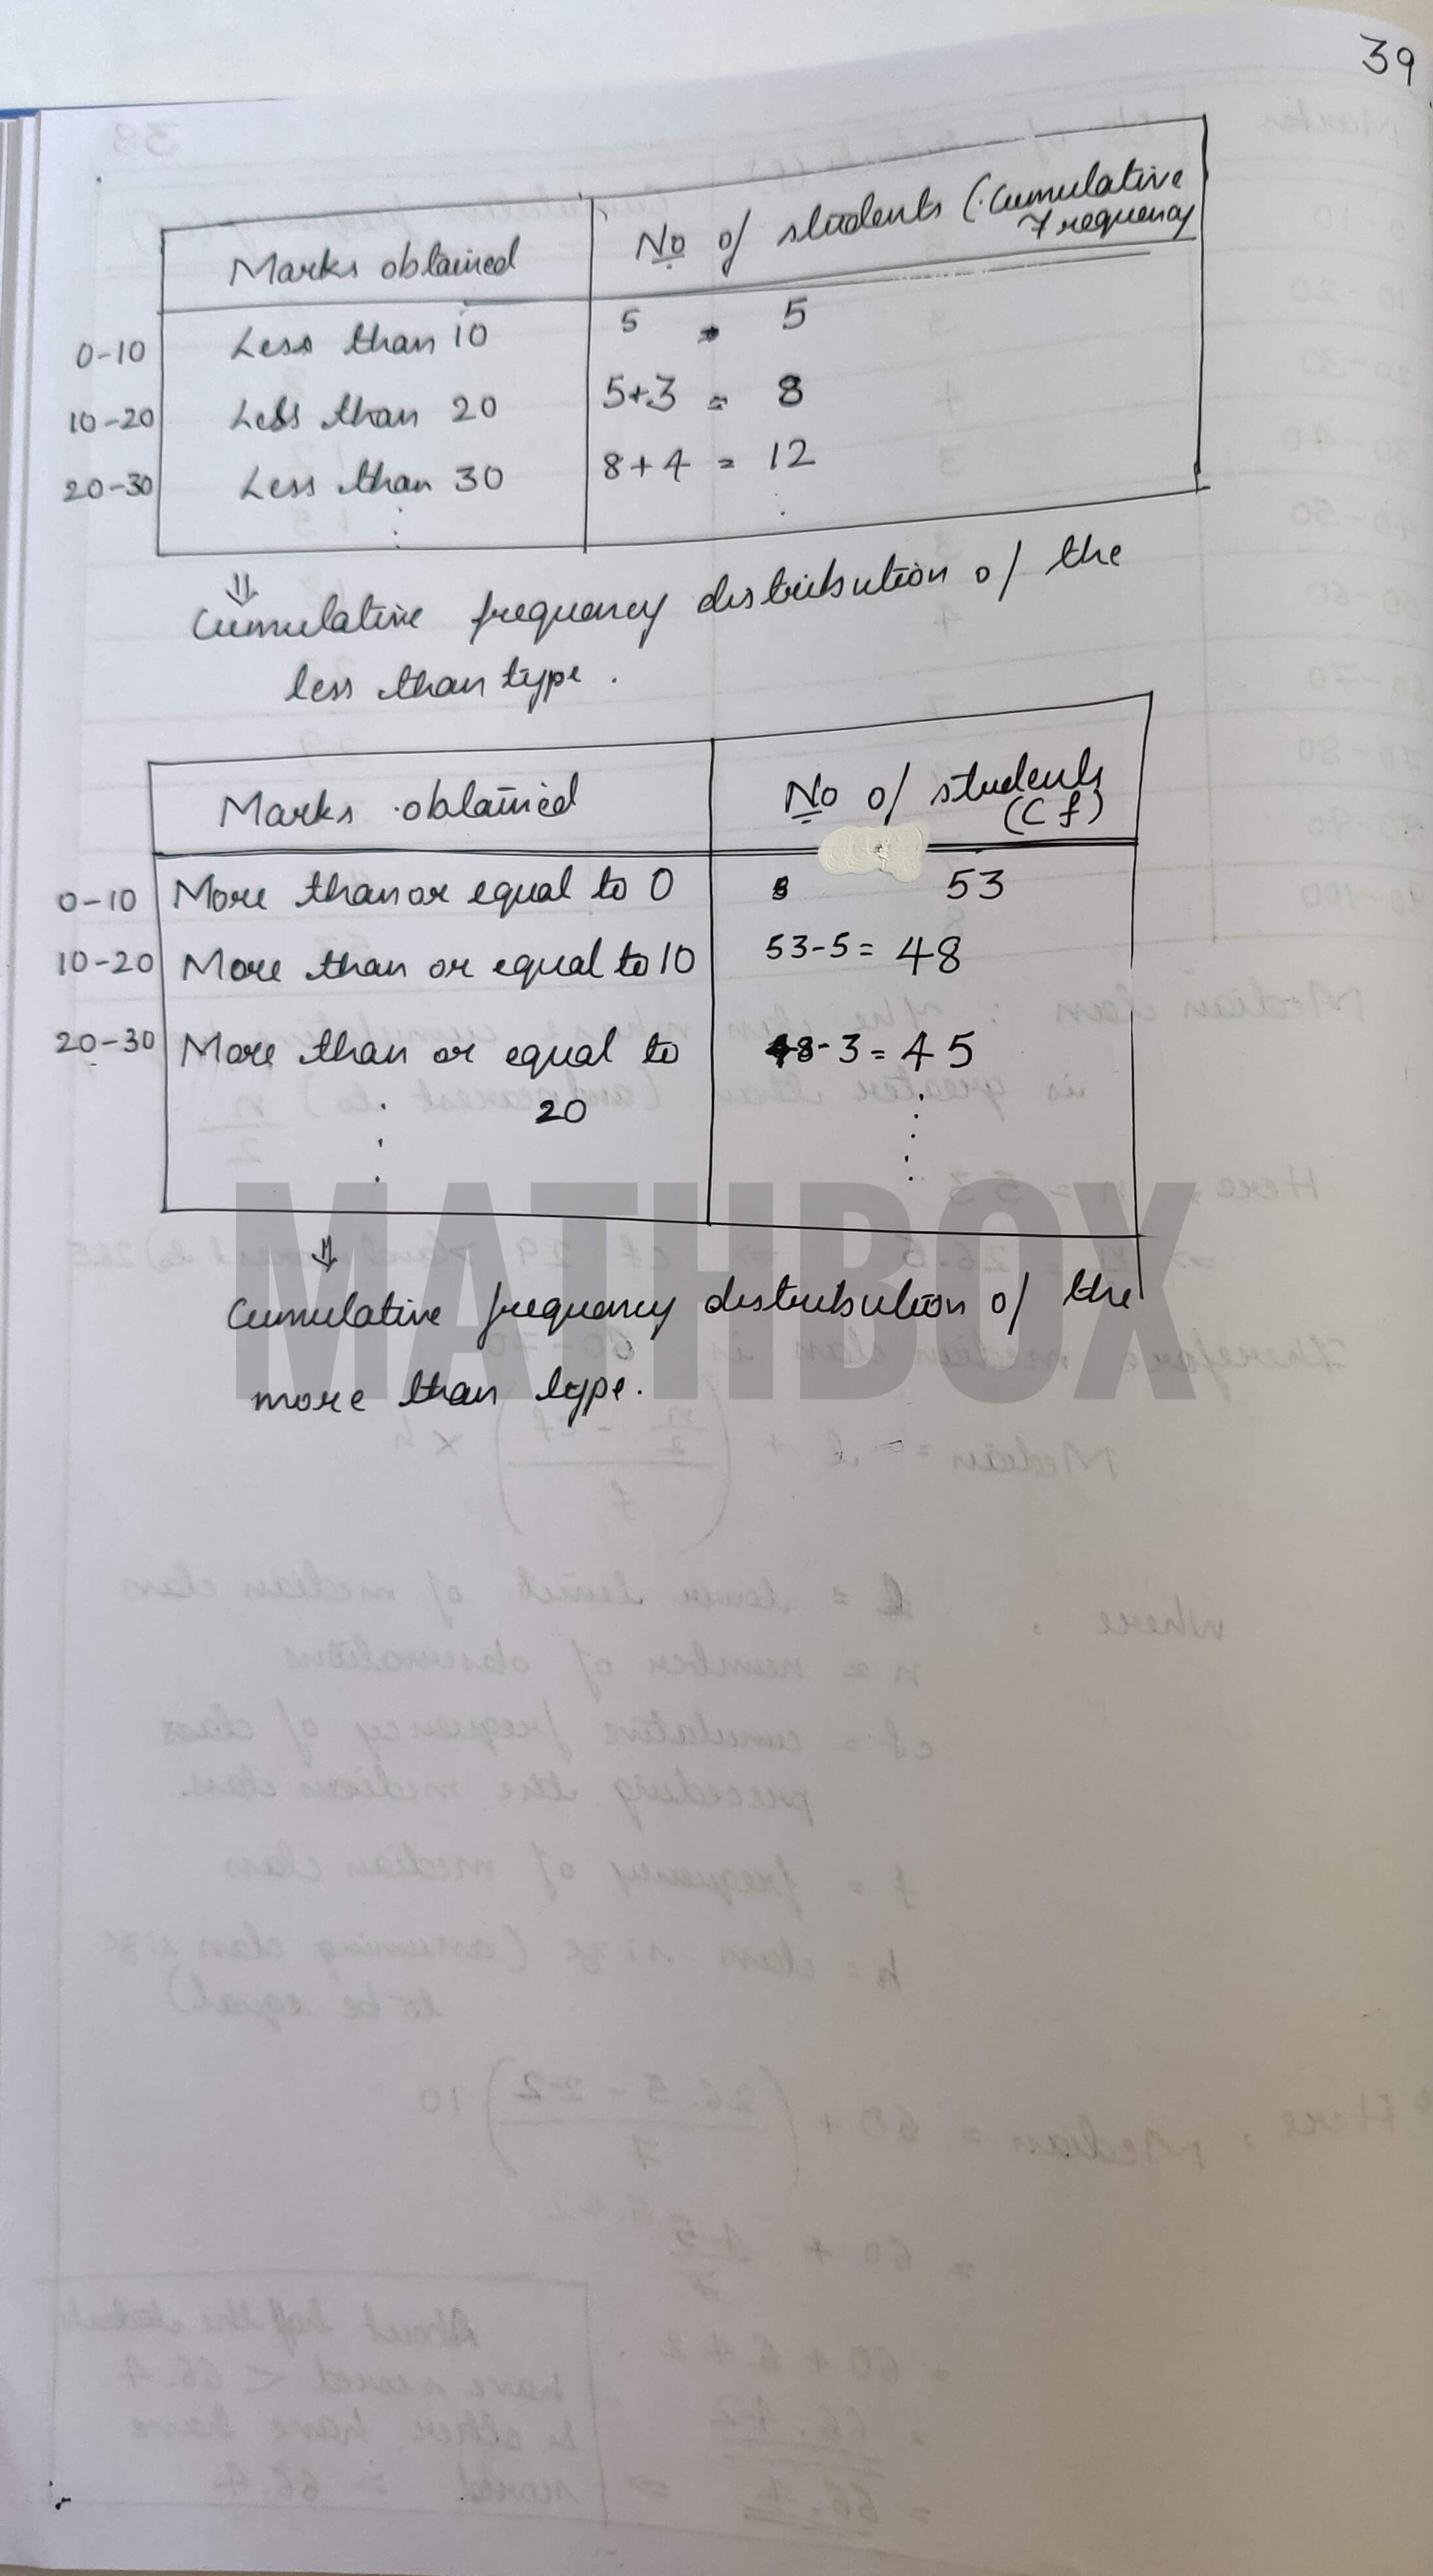 39
Marks obtained No of students (Cumulative Frequency
0-10 Less than 10 5 5
10-20 Less than 20 5+3 = 8
20-30 Less than 30 8+4 = 12
⇓
Cumulative frequency distribution of the
less than type.
Marks obtained No of students (Cf)
0-10 More than or equal to 0 53
10-20 More than or equal to 10 53-5 = 48
20-30 More than or equal to 48-3 = 45
20
⇓
MATHBOX
Cumulative frequency distribution of the
more than type.